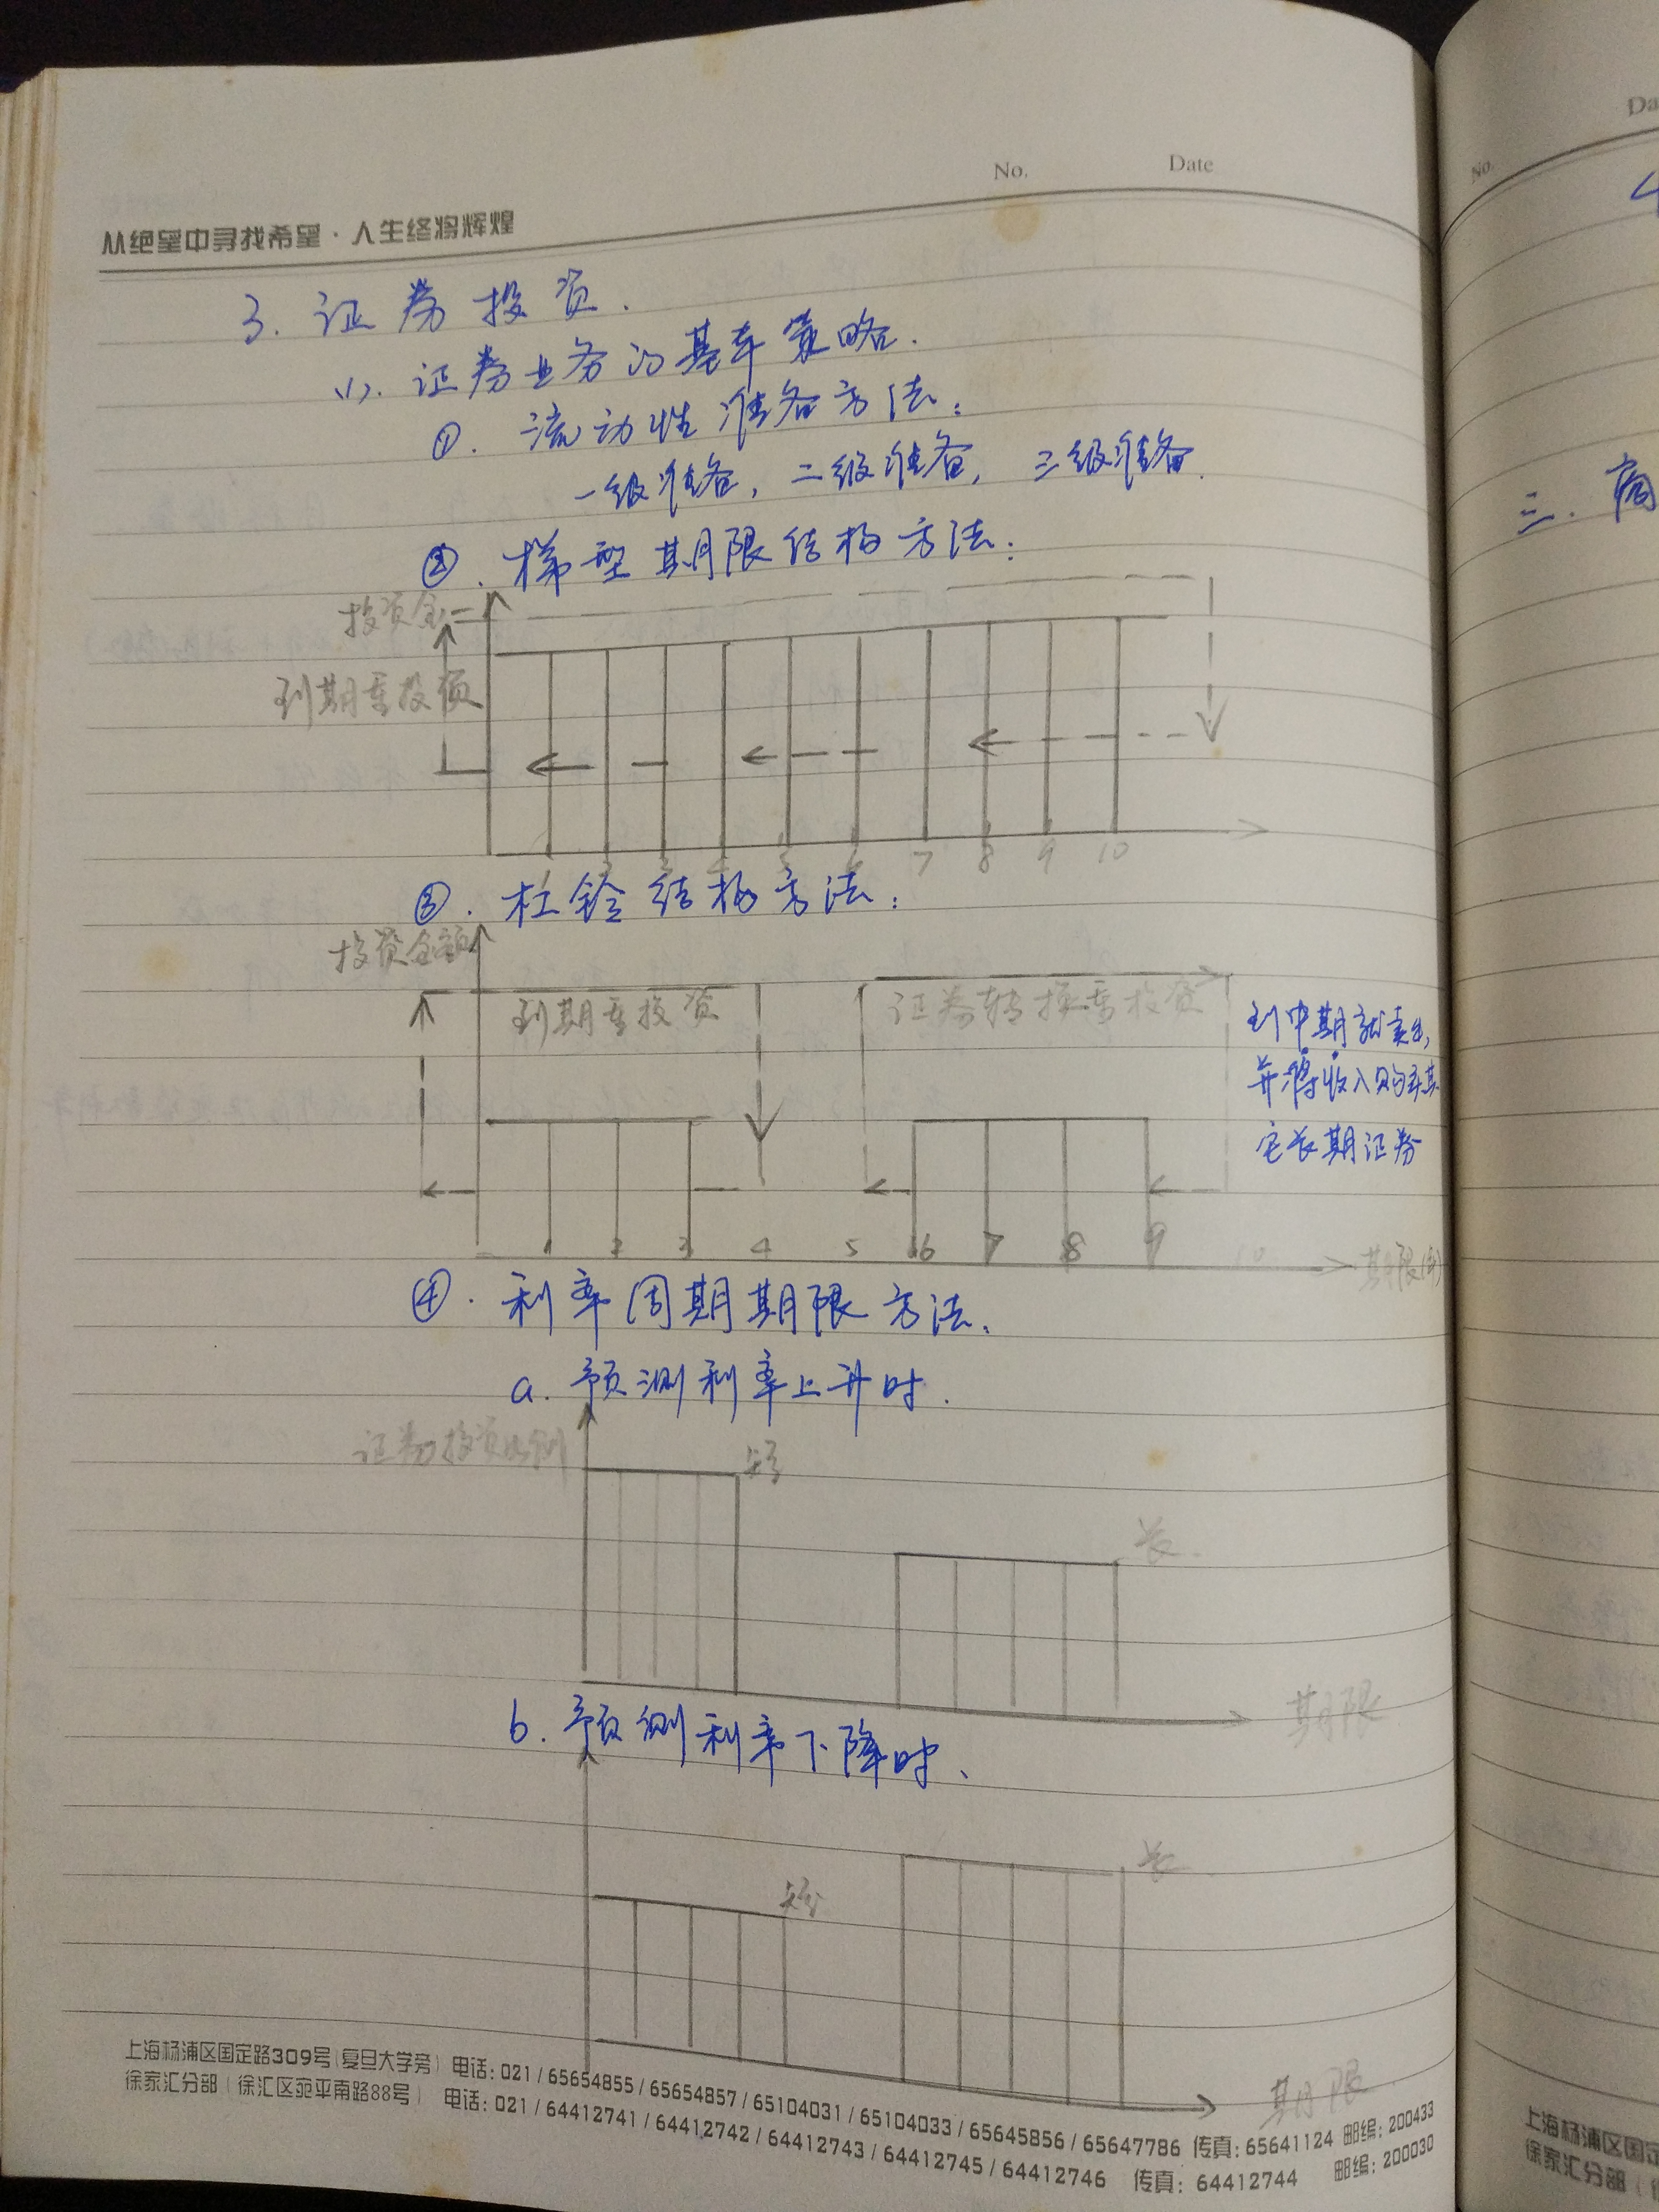 No.
Date
从绝望中寻找希望·人生终将辉煌
3. 证券投资.
(1). 证券业务的基本策略.
①. 流动性准备方法:
一级准备, 二级准备, 三级准备.
②. 梯型期限结构方法:
投资金
到期重投资
1 2 3 4 5 6 7 8 9 10
③. 杠铃结构方法:
投资金额
到期重投资
证券转换重投资
到中期就卖出,
并将收入购买其
它长期证券
1 2 3 4 5 6 7 8 9 10
期限(年)
④. 利率周期期限方法.
a. 预测利率上升时.
证券投资比例
短
长
期限
b. 预测利率下降时.
长
短
期限
上海杨浦区国定路309号(复旦大学旁) 电话: 021 / 65654855 / 65654857 / 65104031 / 65104033 / 65645856 / 65647786 传真: 65641124 邮编: 200433
徐家汇分部 ( 徐汇区宛平南路88号 ) 电话: 021 / 64412741 / 64412742 / 64412743 / 64412745 / 64412746 传真: 64412744 邮编: 200030
No.
Da
三. 商
上海杨浦区国定
徐家汇分部 (